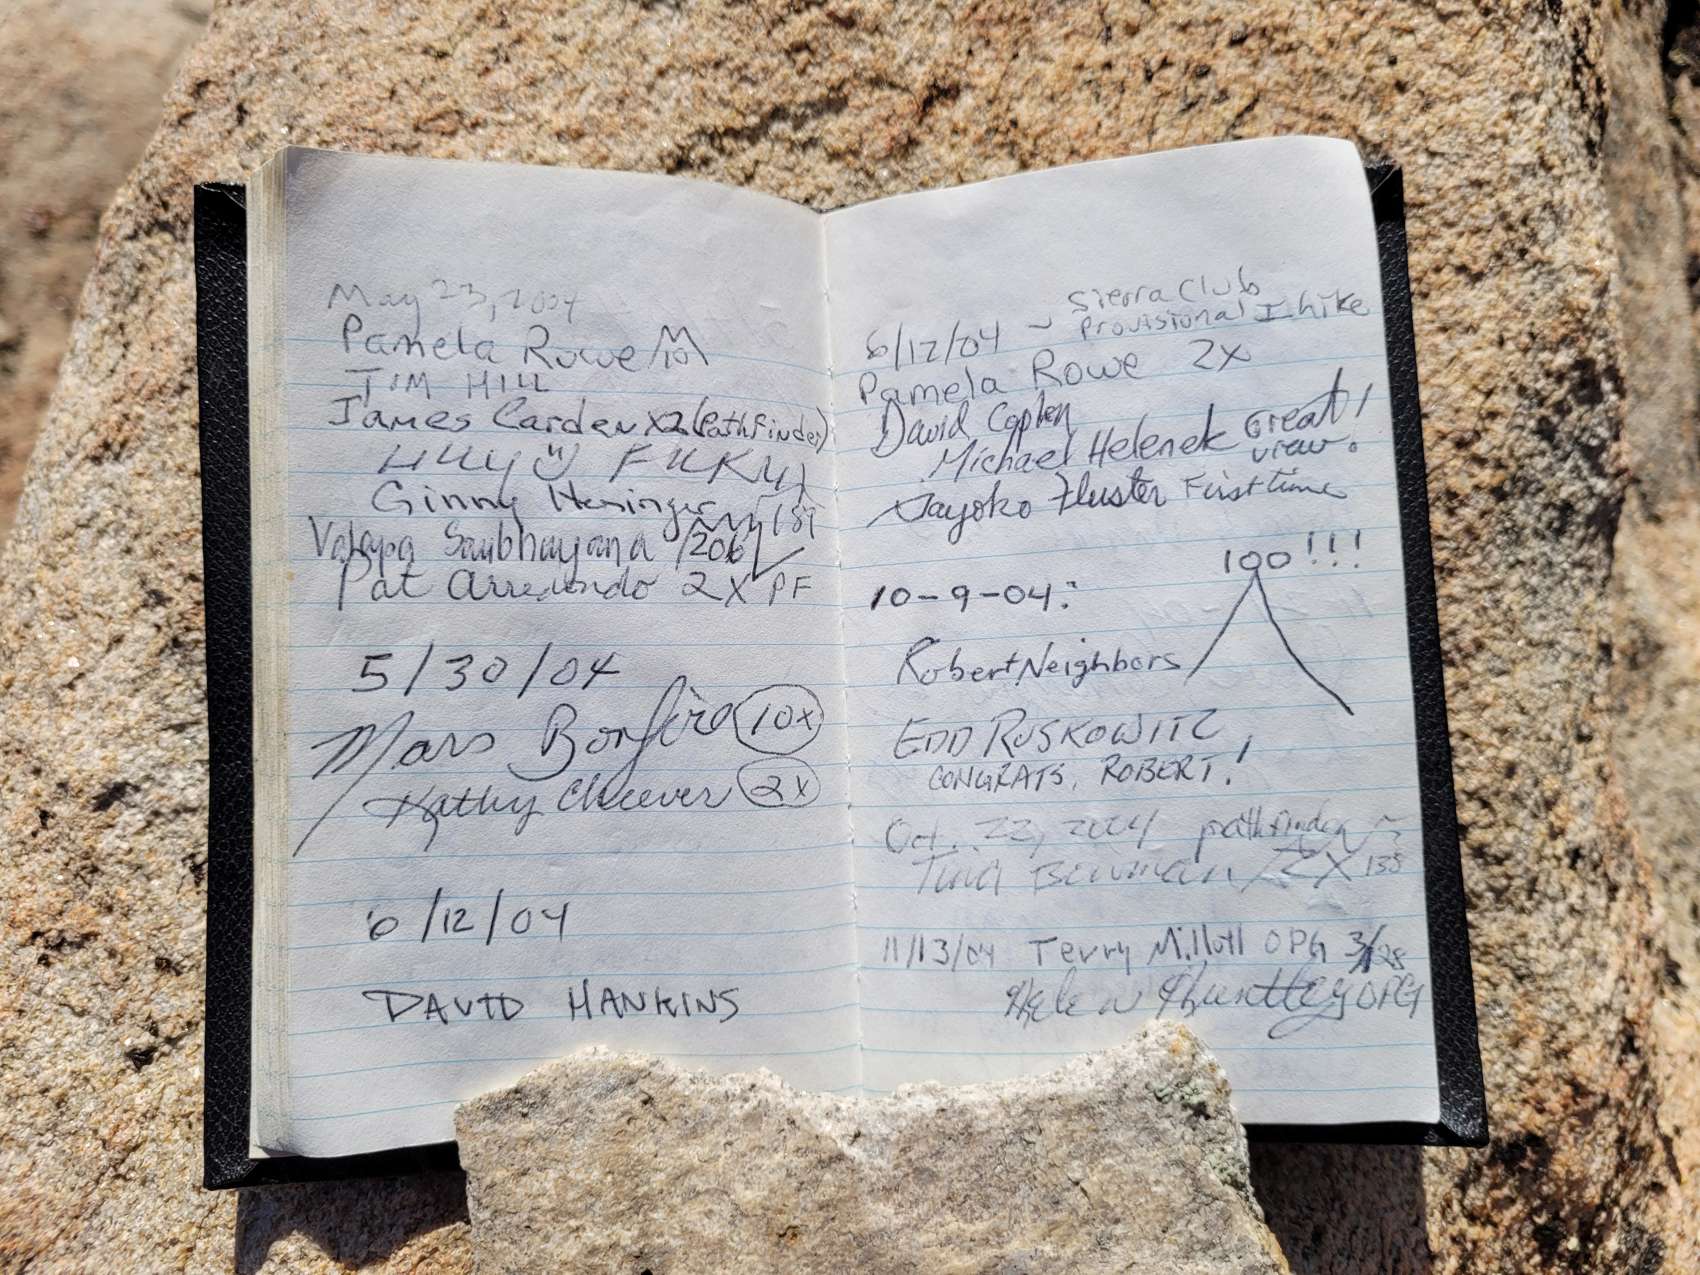 May 23, 2004
Pamela Rowe M 10
TIM HILL
James Carden x2 (Pathfinder)
Ginny Heringer 157
Saubhayana /206
Pat Arredondo 2X PF
5/30/04
Mars Bonfire 10x
Kathy Cheever 2x
6/12/04
DAVID HANKINS
Sierra Club
6/12/04 ~ Provisional I hike
Pamela Rowe 2x
David Coplen
Michael Helenek Great
view!
Fluster First time
100!!!
10-9-04:
Robert Neighbors
EDD RUSKOWITZ
CONGRATS, ROBERT!
Oct. 22, 2004 pathfinder
Tina Bowman 2X 135
11/13/04 Terry OPG 3/28
Helen OPG